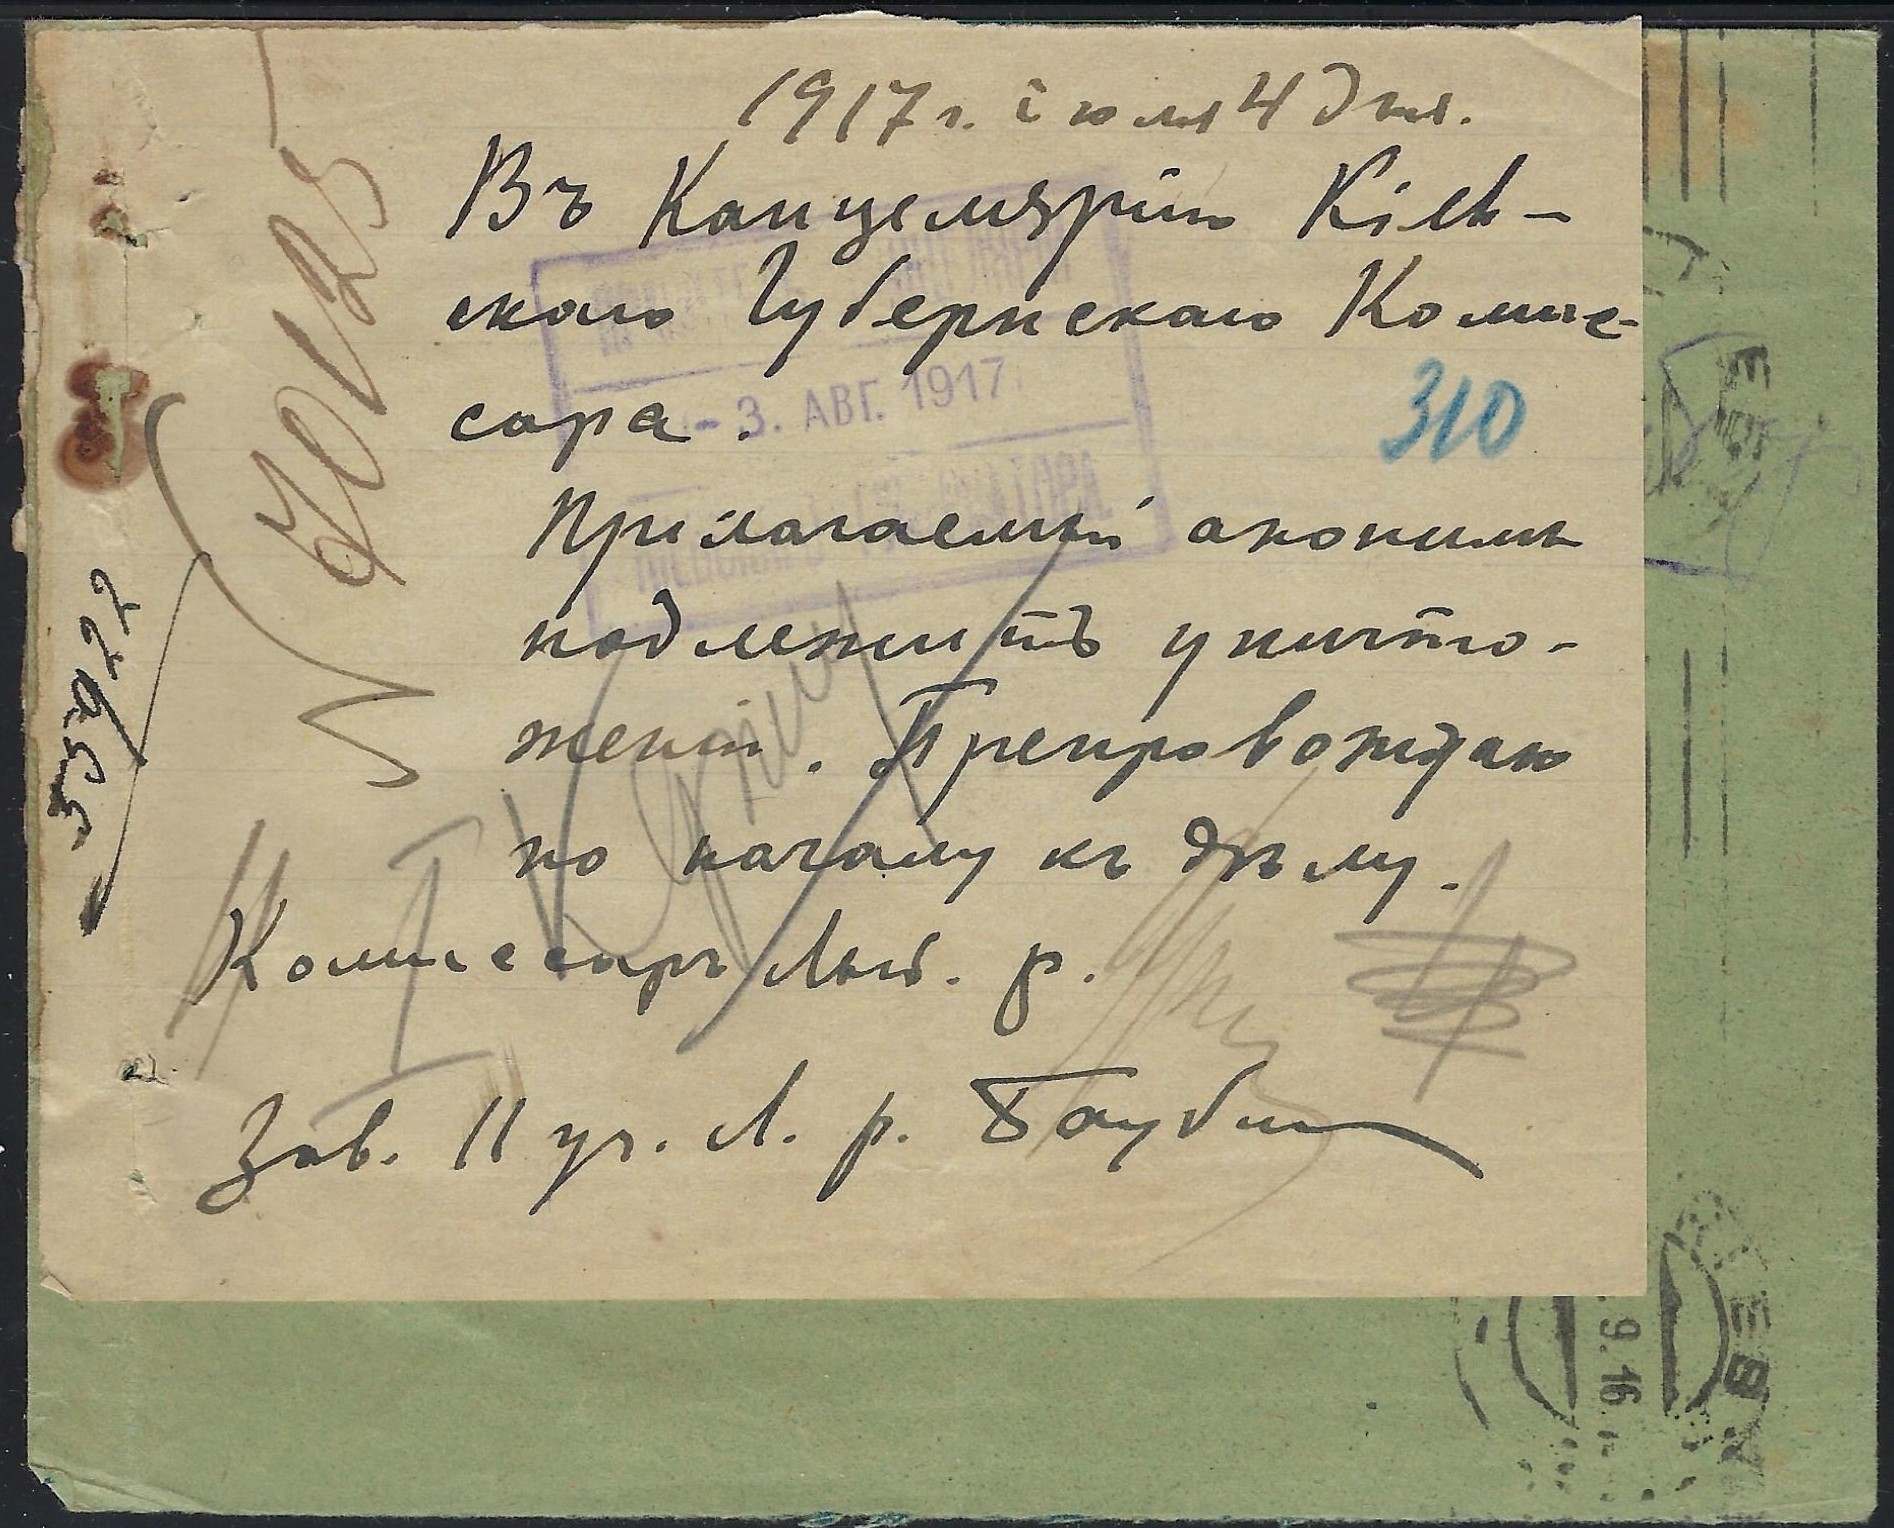 1917 г. іюля 4 дня.
Въ Канцелярію Кіев-
скаго Губернскаго Комис-
сара.
310
- 3. АВГ. 1917
Прилагаемый анонимъ
подлежитъ уничто-
женію. Препровождаю
по началу къ дѣлу.
Комиссаръ Лыб. р.
Зав. II уч. Л. р.
40125
33922
9.16
КІЕВ